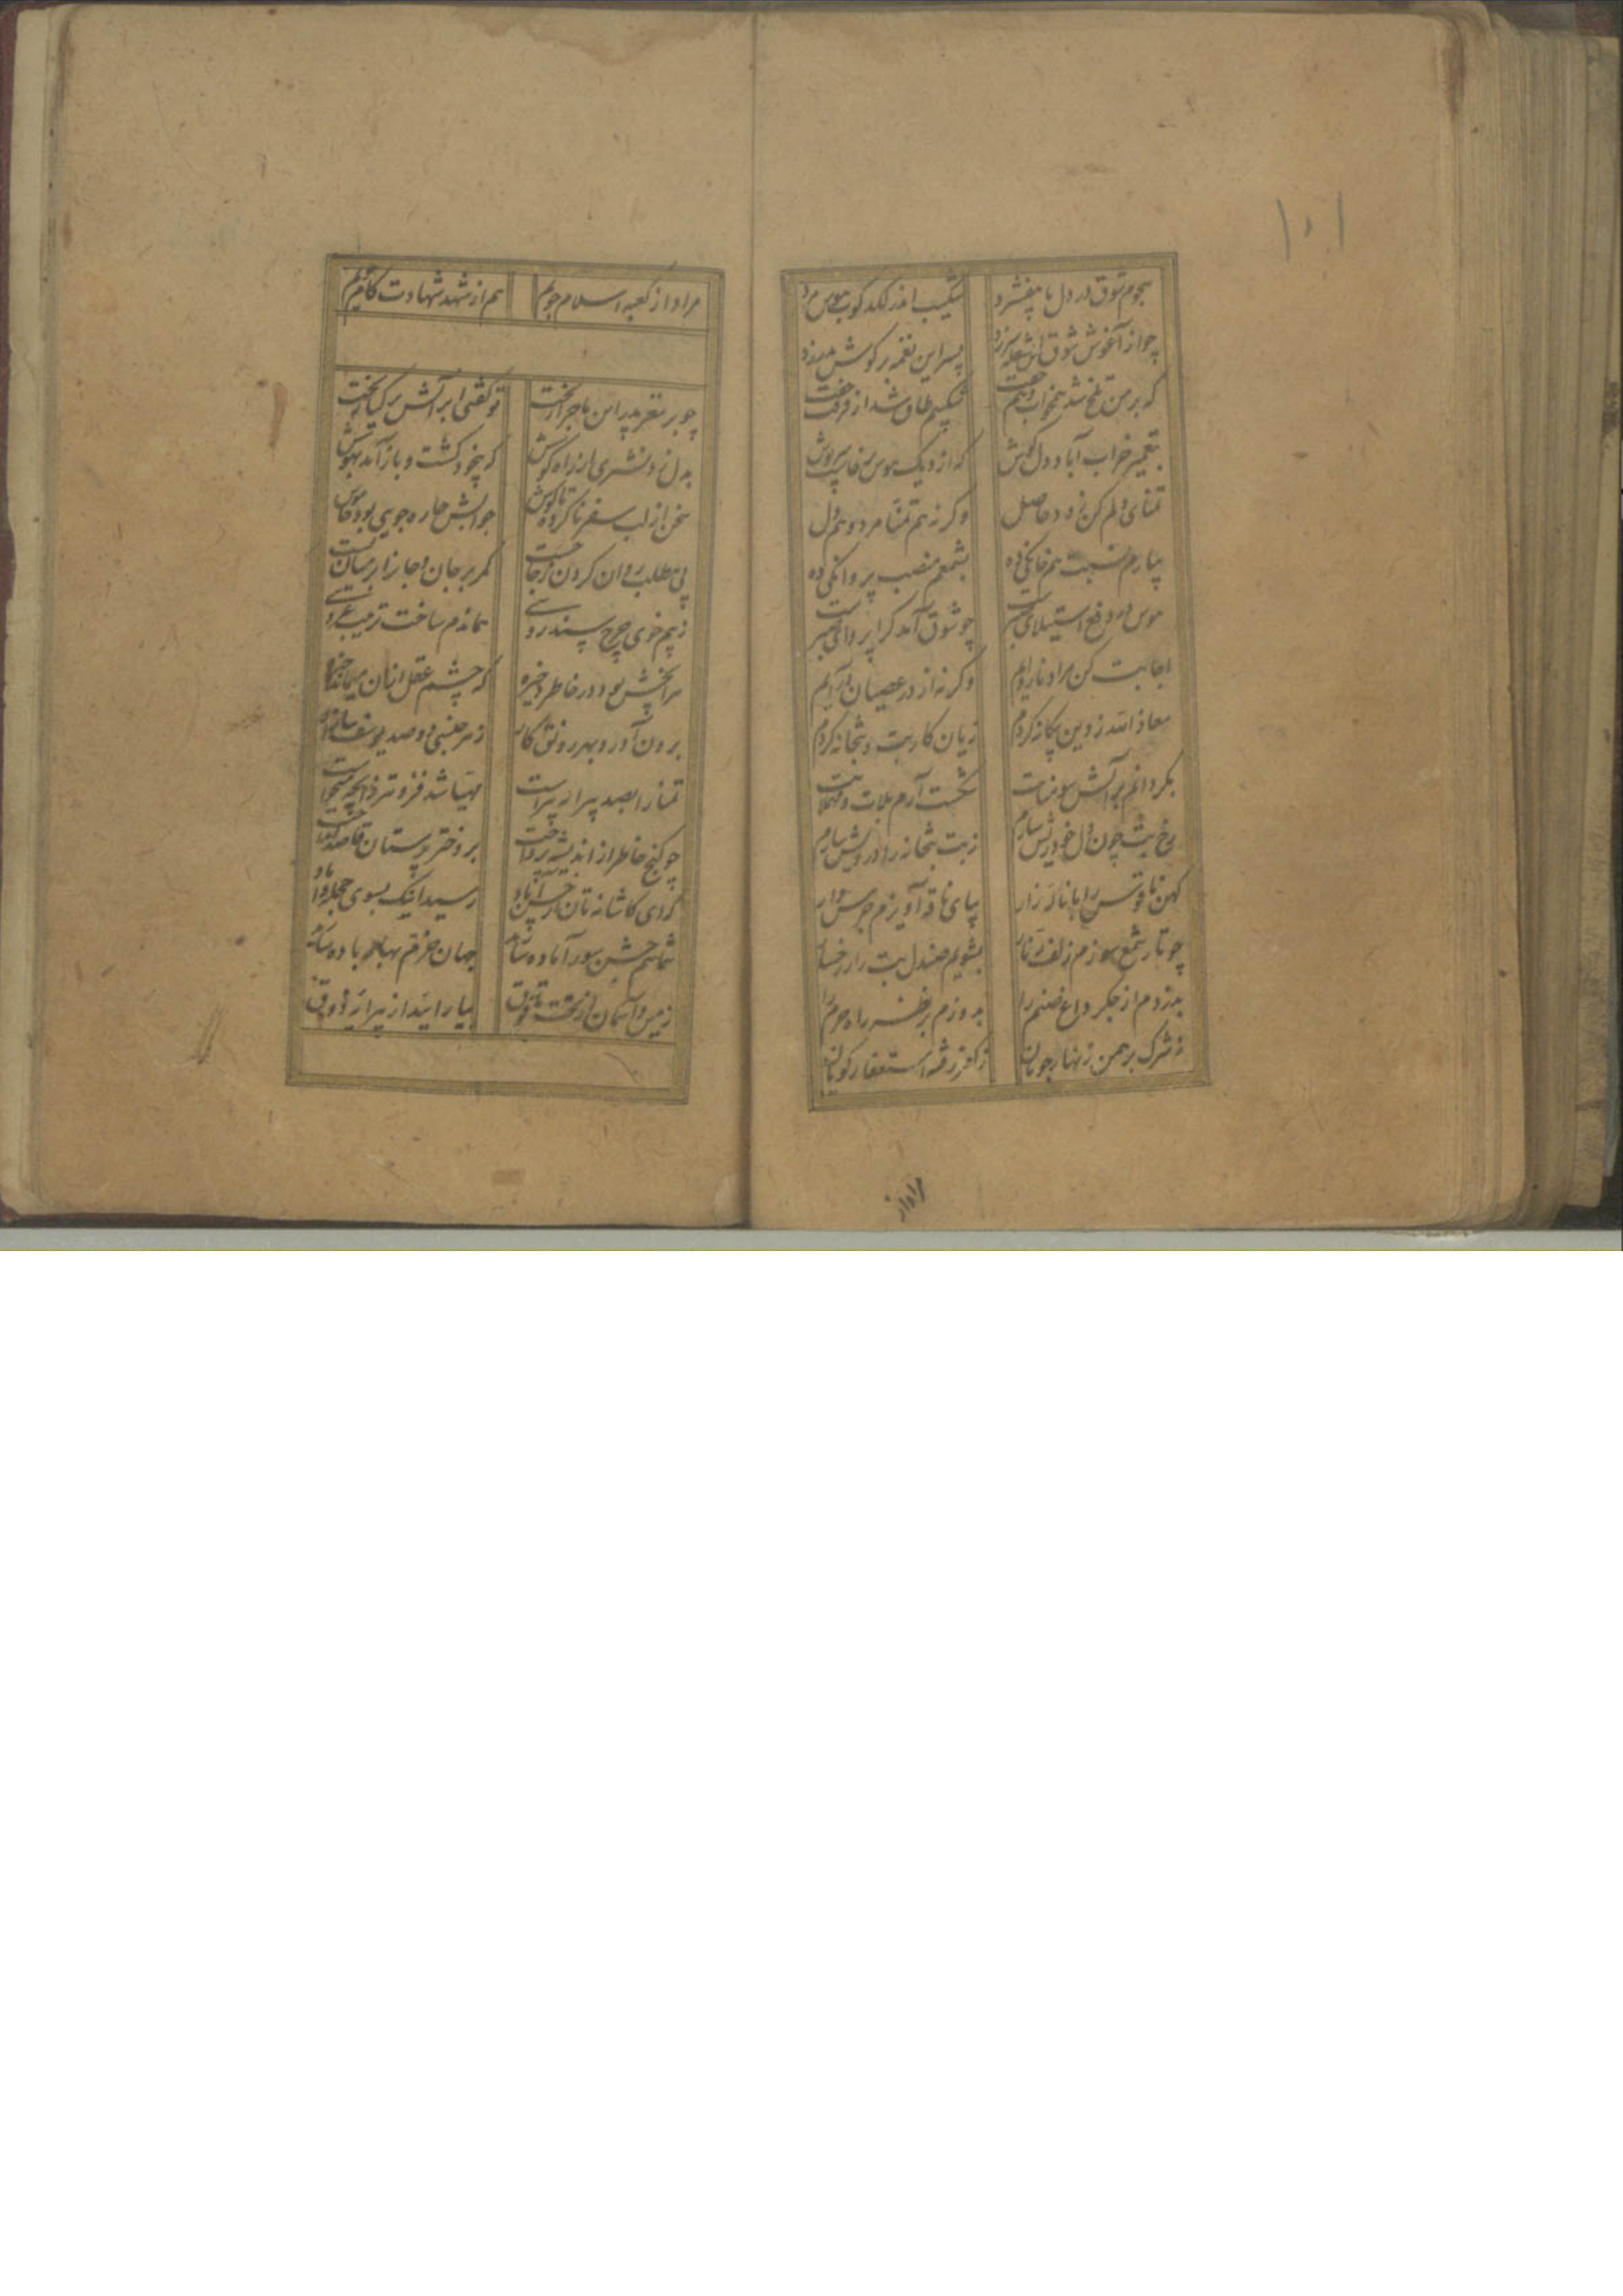 ۱۰۱
هجوم شوق در دل پا بیفشرد شکیب اندر لکدکوب هوس مرد
چو از آغوش شوق این شعله سر زد پسر این نغمه بر گوش پدر زد
که بر من تلخ شد همخواب و هم جفت شکیبم طاق شد از فرقت جفت
بتعمیر خراب آباد دل کوش که از دیک هوس
تمنای دلم کن زود حاصل وگرنه هم تمنا مرد و هم دل
بیارم نسبت هم خانگی ده بشمعم منصب پروانگی ده
هوس در دفع استیلای صبر است چو شوق آمد کرا پروای صبر است
اجابت کن مراد ناروایم وگرنه از در عصیان درآیم
معاذ الله ز دین بیگانه گردم زیان کار بت و بتخانه گردم
بگردانم بر آتش سومنات شکست آرم بلات و
رخ بت چون دل خود ریش سازم ز بت بتخانه را درویش سازم
کهن ناقوس را با نالهٔ زار بپای ناقه آویزم جرس وار
چو تار شمع سوزم زلف زنار بشویم صندل بت را ز رخسار
بدزدم از جگر داغ صنم را بدوزم بر نظر راه حرم را
ز شرک برهمن زنهار جویان ز کفر رفته استغفار گویان
مراد از
مراد از کعبه اسلام جویم هم از شهد شهادت کام
چو بر مغز پدر این ماجرا ریخت تو گفتی ابر آتش بر گیا ریخت
بدل زد نشتری از راه گوش که بیخود گشت و باز آمد بهوش
سخن از لب سفر ناکرده تا گوش جوابش چاره جویی بود خاموش
پی مطلب روان کردن ز جا جست کمر بر جان و جان را بر میان بست
ز بیم خوی چرخ سندروسی همان دم ساخت ترتیب عروسی
هر آنچش بود در خاطر ذخیره که چشم عقل ازان میماند خیره
برون آورد بهر رونق کار ز هر جنسی دو صد یوسف بازار
تمنا را بصد پیرایه پیراست مهیا شد فزونتر ز آنچه میخواست
چو گنج خاطر از اندیشه پرداخت بر دختر پرستان قاصد انداخت
که ای کاشانه تان از حسن آباد رسید اینک بسوی حجله داماد
شما هم جشن سور آماده سازید جهان خرم بهای باده سازید
زمین و آسمان از تحت تا فوق بیارایند از پیرایهٔ ذوق